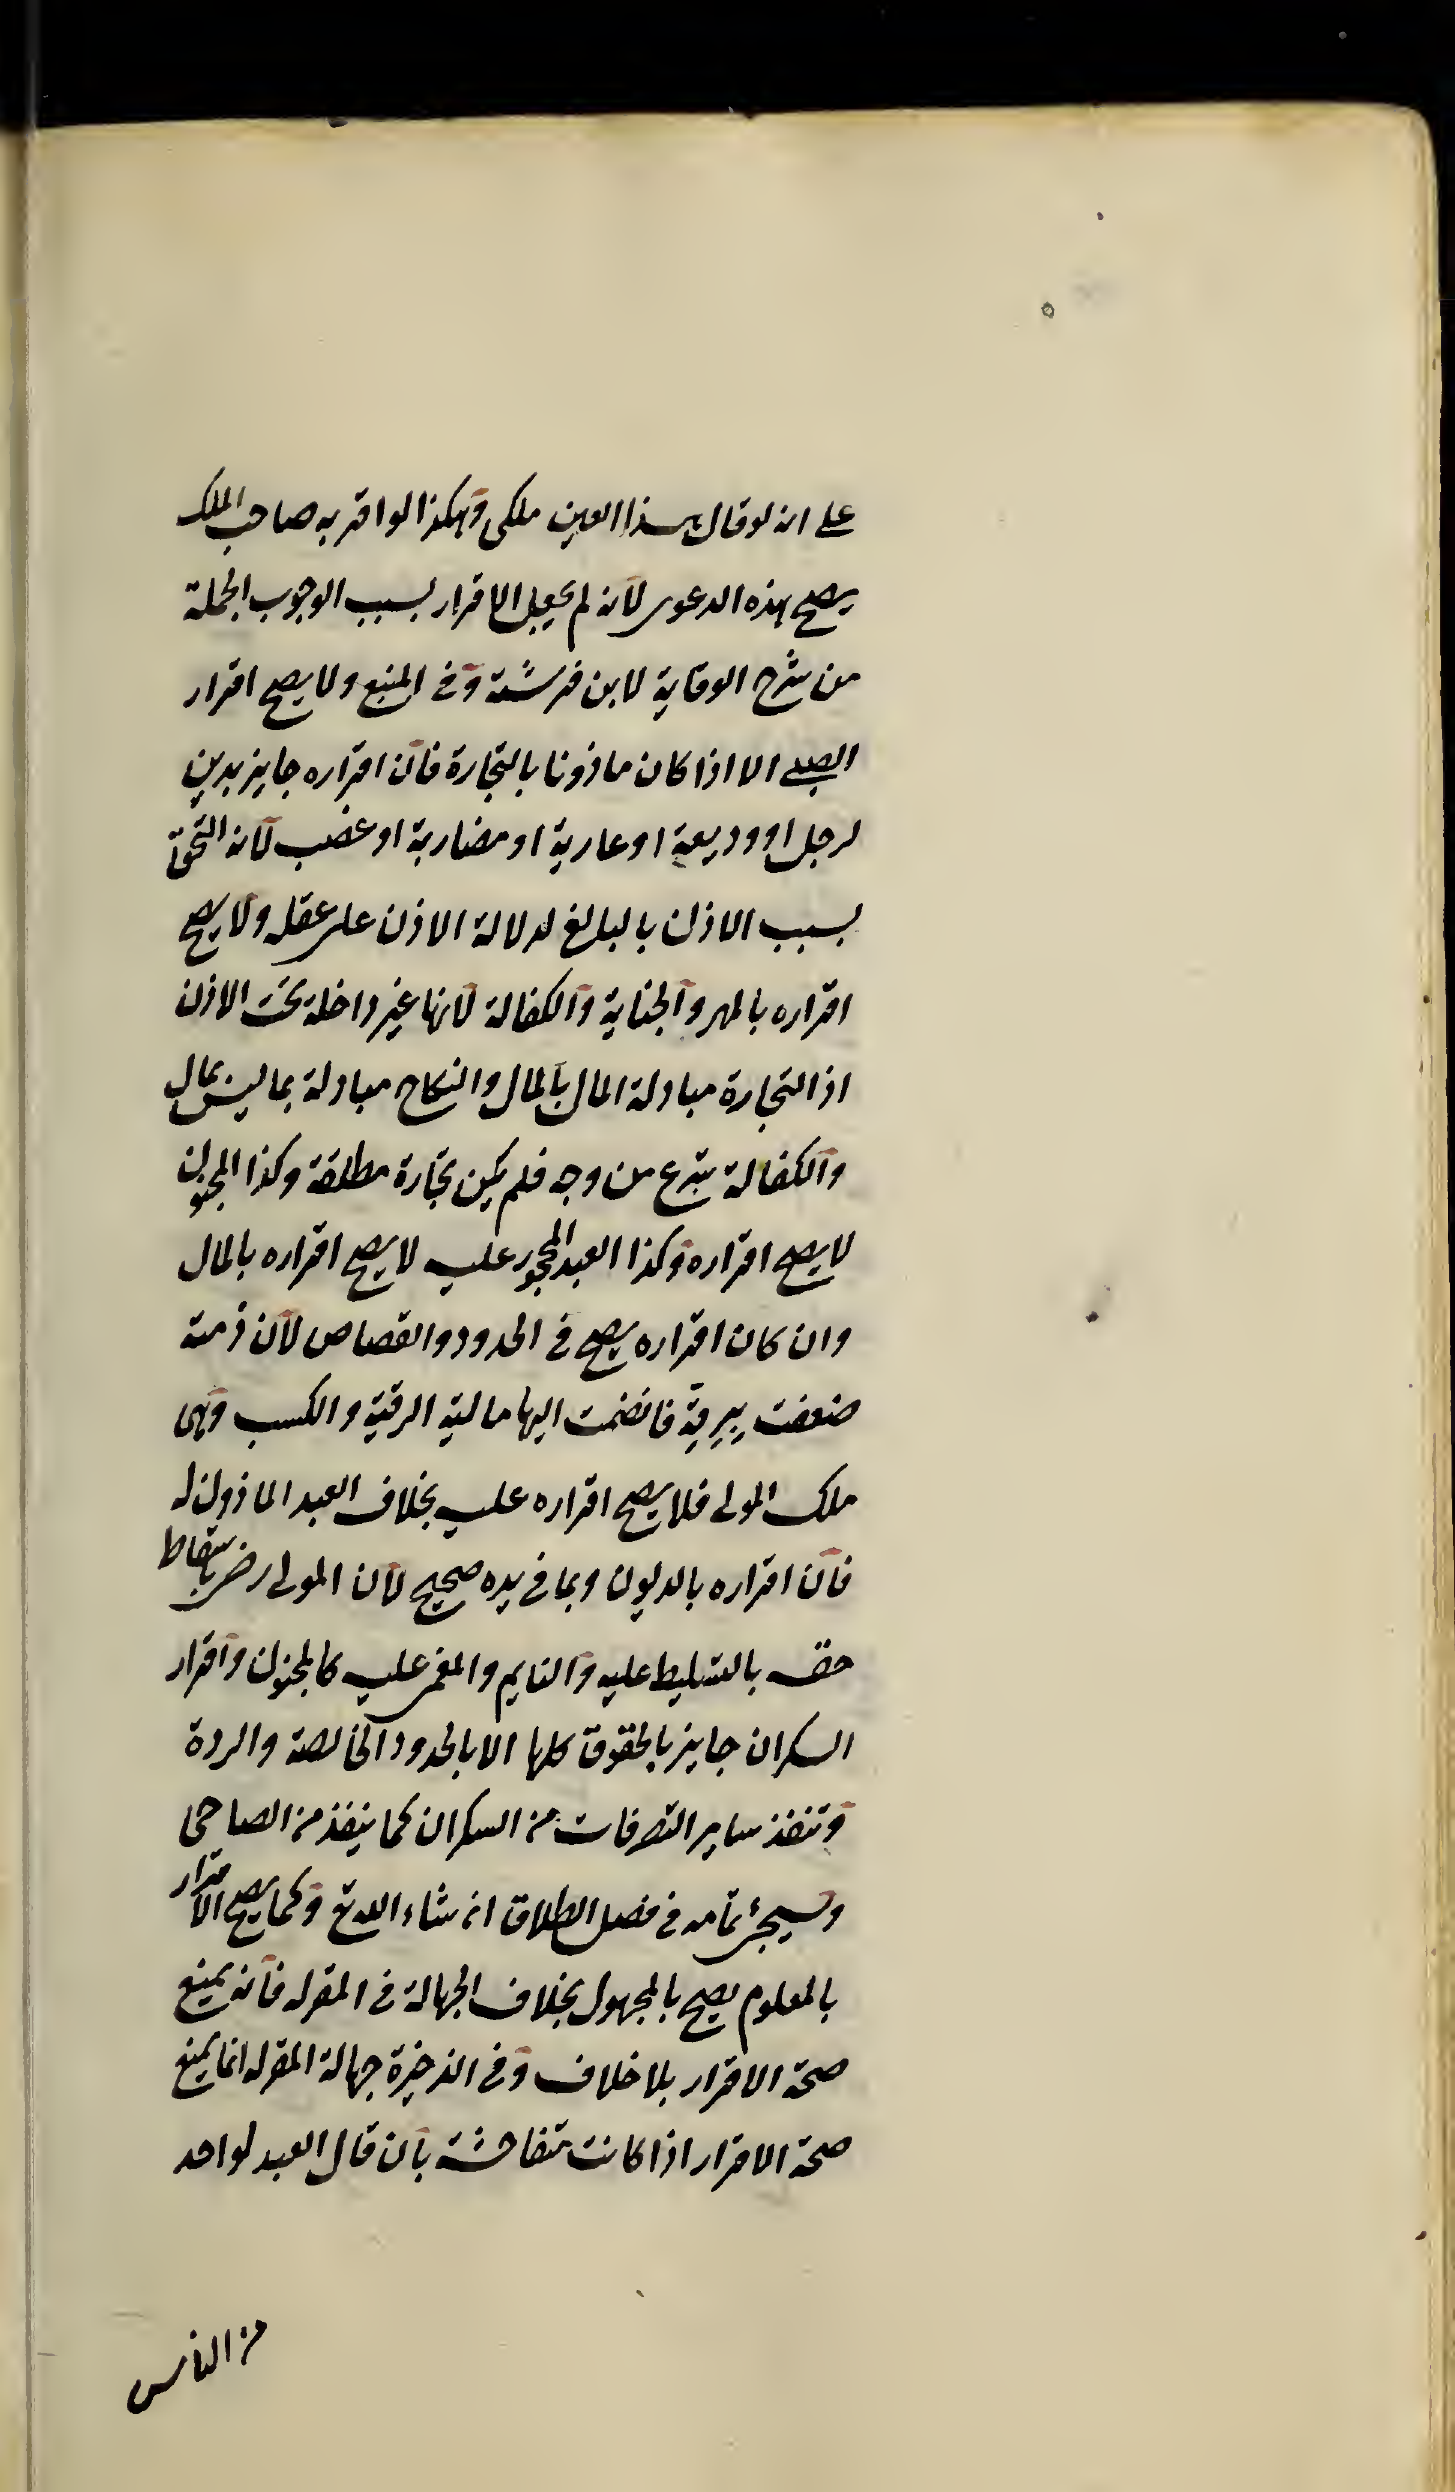 على انه لو قال هذا العين ملكى وهكذا لو اقر به صاحب الملك
يصح هذه الدعوى لانه لم يجعل الاقرار لسبب الوجوب الجملة
من شرح الوقاية لابن فرشته وفى المنبع ولا يصح اقرار
الصبى الا اذا كان ماذونا بالتجارة فان اقراره جايز بدين
لرجل او وديعة او عارية او مضاربة او غصب لانه التحق
بسبب الاذن بالبالغ لدلالة الاذن على عقله ولا يصح
اقراره بالمهر والجناية والكفالة لانها غير داخلة تحت الاذن
اذ التجارة مبادلة المال بالمال والنكاح مبادلة بما ليس بمال
والكفالة تبرع من وجه فلم يكن تجارة مطلقة وكذا المجنون
لا يصح اقراره وكذا العبد المحجور عليه لا يصح اقراره بالمال
وان كان اقراره يصح فى الحدود والقصاص لان ذمته
ضعفت برقه فانضمت اليها مالية الرقبة والكسب وهى
ملك المولى فلا يصح اقراره عليه بخلاف العبد الماذون له
فان اقراره بالديون وبما فى يده صحيح لان المولى رضى باسقاط
حقه بالتسليط عليه والنايم والمغمى عليه كالمجنون واقرار
السكران جايز بالحقوق كلها الا بالحدود الخالصة والردة
وتنفذ ساير التصرفات من السكران كما ينفذ من الصاحى
وسيجئ تمامه فى فصل الطلاق ان شاء الله تع وكما يصح الاقرار
بالمعلوم يصح بالمجهول بخلاف الجهالة فى المقر له فانه يمنع
صحة الاقرار بلا خلاف وفى الذخيرة جهالة المقر له انما يمنع
صحة الاقرار اذا كانت متفاحشة بان قال العبد لواحد
من الناس